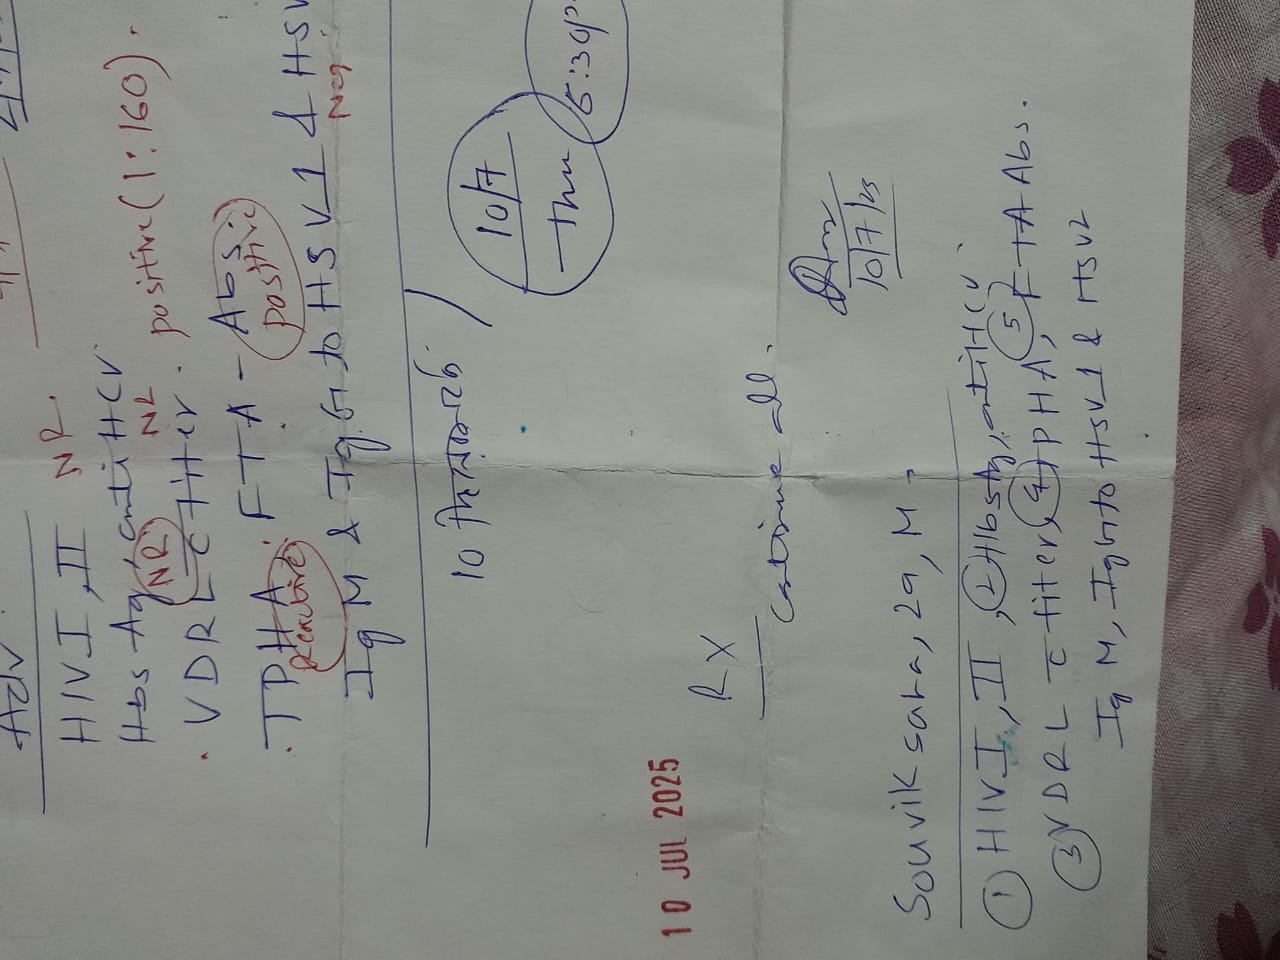 Adv
HIV I, II NR
Hbs Ag, anti HCV
NR NR
VDRL c titer. positive (1:160).
TPHA. FTA-Abs.
Reactive positive
IgM & IgG to HSV 1 & HSV
Neg.
10/7
Thu
5:30p
10
RX
continue all.
10 JUL 2025
10/7/25
Souvik saha, 29, M.
① HIV I, II, ② Hbs Ag, anti HCV
③ VDRL c titer, ④ TPHA, ⑤ FTA Abs.
IgM, IgG to HSV 1 & HSV2